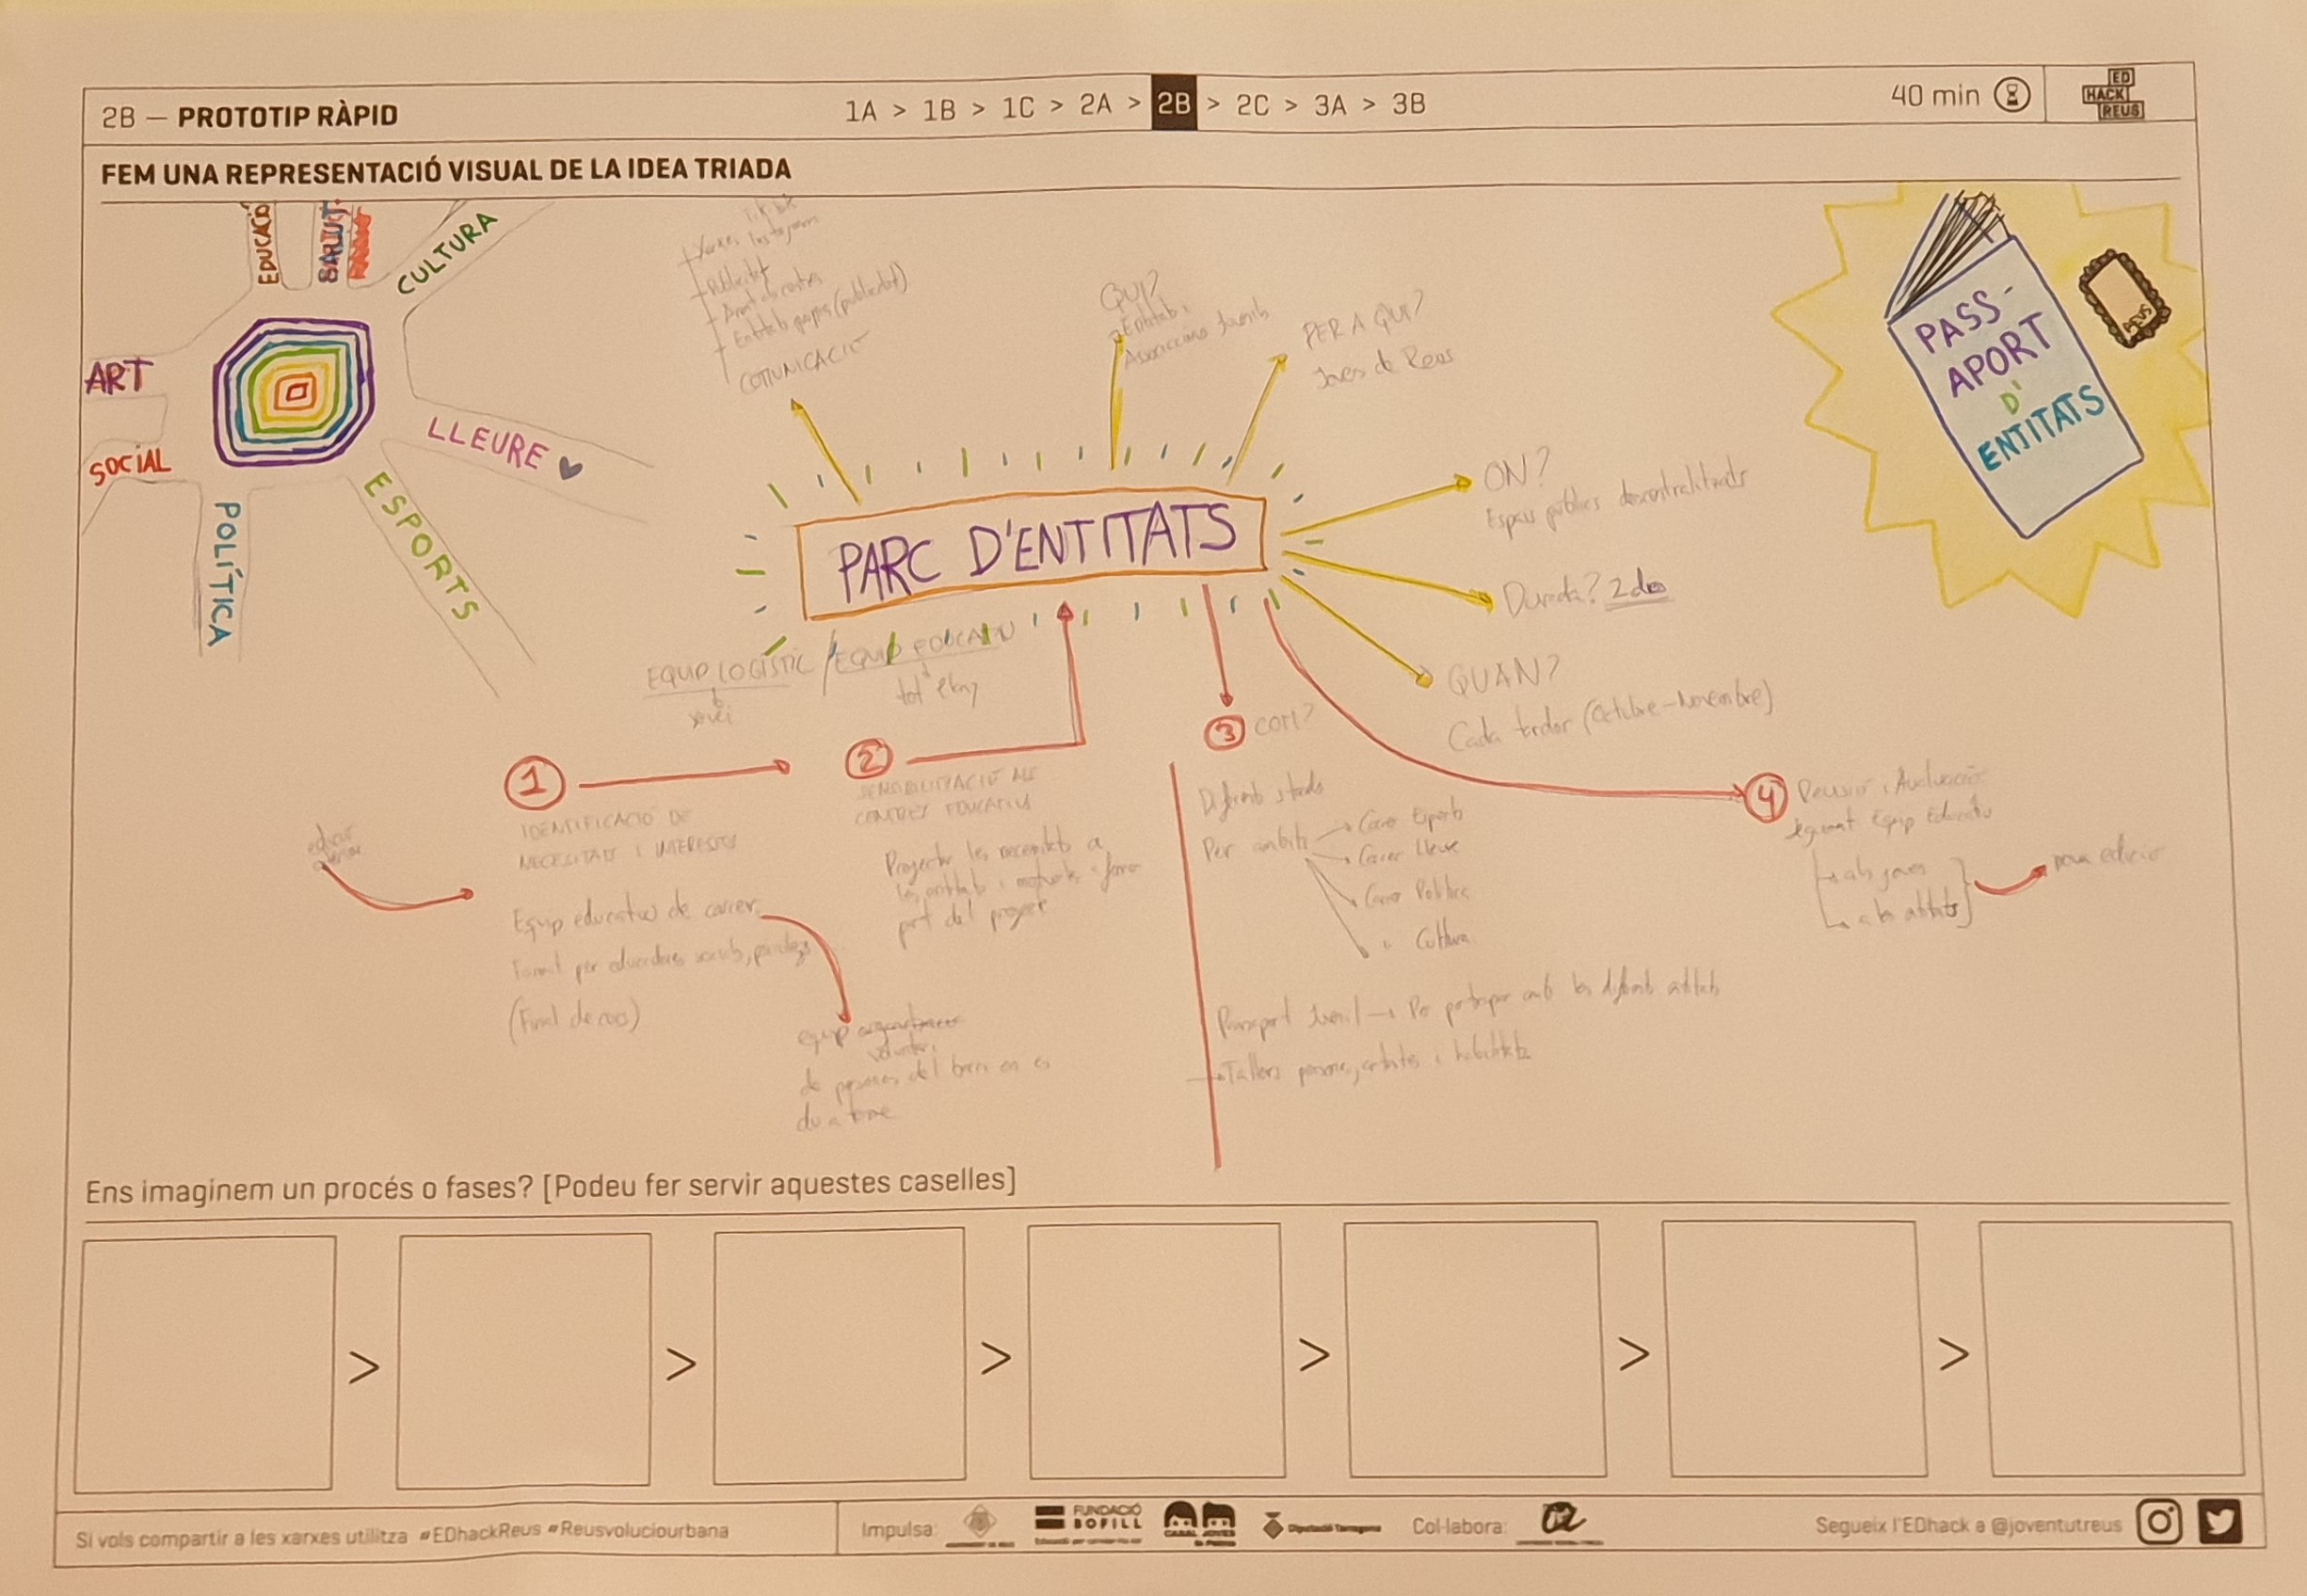 2B — PROTOTIP RÀPID
1A > 1B > 1C > 2A > 2B > 2C > 3A > 3B
40 min
ED
HACK
REUS
FEM UNA REPRESENTACIÓ VISUAL DE LA IDEA TRIADA
EDUCACIÓ
SALUT
CULTURA
ART
SOCIAL
POLÍTICA
ESPORTS
LLEURE
Xarxes Instagram
Publicitat
Entitats (publicitat)
COMUNICACIÓ
QUI?
Entitats i
PER A QUI?
Joves de Reus
ON?
Espais públics descentralitzats
Durada?
QUAN?
Cada tardor (Octubre-Novembre)
PASS-
APORT
D'
ENTITATS
REUS
PARC D'ENTITATS
EQUIP LOGÍSTIC / EQUIP EDUCATIU
tot l'any
1
IDENTIFICACIÓ DE
NECESITATS I INTERESSOS
Equip educatiu de carrer
Format per educadores socials,
2
SENSIBILITZACIÓ ALS
CENTRES EDUCATIUS
Projectar les necesitats a
les entitats i
part del projecte
equip
voluntari
de persones del barri on es
du a terme
3 COM?
Diferents stands
Per àmbits
Carrer Esports
Carrer Lleure
Carrer Política
" Cultura
Passaport Juvenil → Per participar amb les diferents entitats
→ Tallers
4 Revisió i Avaluació
Equip Educatiu
als joves
a les entitats
nova edició
Ens imaginem un procés o fases? [Podeu fer servir aquestes caselles]
> > > > > >
Si vols compartir a les xarxes utilitza #EDhackReus #Reusvoluciourbana
Impulsa:
FUNDACIÓ
BOFILL
CASAL JOVES
Diputació Tarragona
Col·labora:
Segueix l'EDhack a @joventutreus